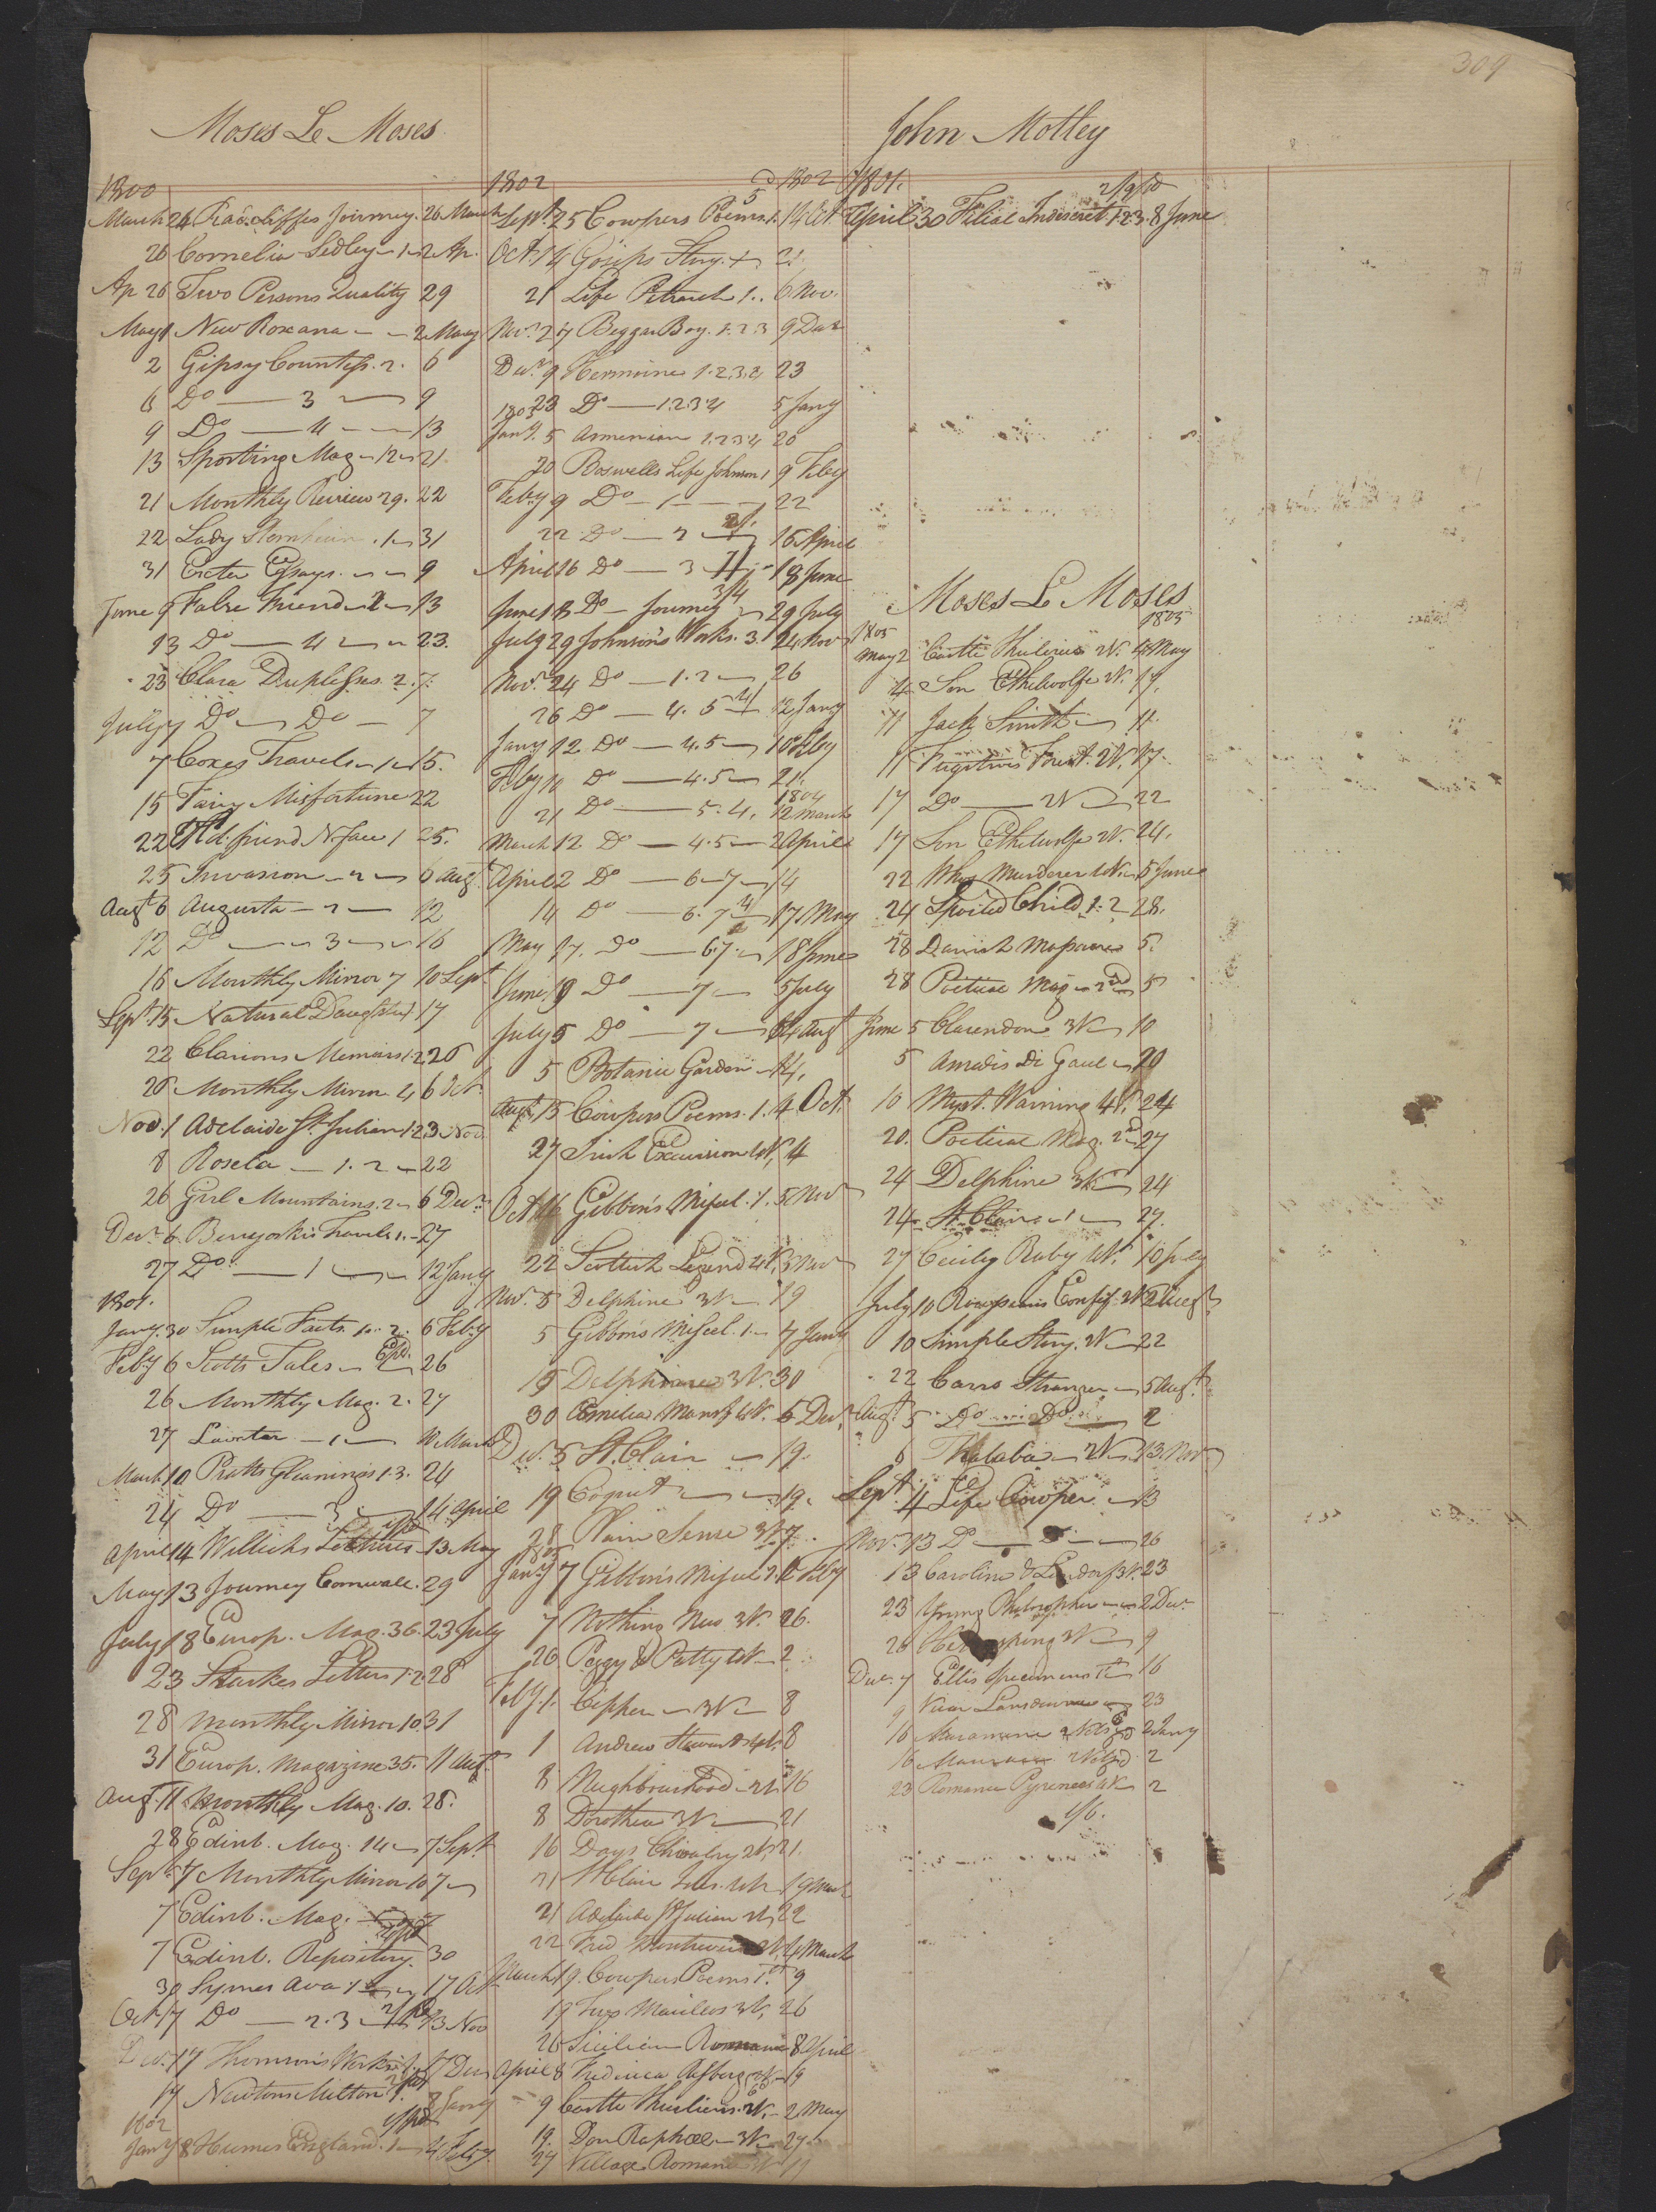 309
Moses Le Moses
1800
March 24 Radcliffes Journey. 26 March
26 Cornelia Sedley 1 2 Ap.
Ap 26 Two Persons Quality 29
May 1 New Roxana 2 May
2 Gipsy Countess. 2. 6
6 Do 3 9
9 Do 4 13
13 Sporting Mag 12 21
21 Monthly Review 29. 22
22 Lady Sternheim. 1 31
31 Exeter Essays 9
June 9 False Friend 2 13
13 Do 4 23.
23 Clara Duplessis. 2. 7.
July 7 Do Do 7
7 Coxes Travels 1 15.
15 Fairy Misfortune 22
22 Old friend N. face 1 25.
25 Invasion 2 6 Augt
Augt 6 Augusta 2 12
12 Do 3 16
16 Monthly Mirror 7 10 Sept
Sept. 15 Natural Daughter 17
22 Clarions Memoirs 1.2 26
26 Monthly Mirror 4 6 Oct.
Nov. 1 Adelaide St. Julian 1.2 3 Nov.
8 Rosela 1. 2 22
26 Girl Mountains. 2 6 Decr.
Decr. 6 Benyoskis Travels 1. 27
27 Do 1 12 Jany
1801.
Jany. 30 Simple Facts. 1. 2. 6 Feby
Feby 6 Scotts Tales 26
26 Monthly Mag. 2. 27
27 Lavater 1 10 March
March 10 Pratts Gleanings 1.3. 24
24 Do 3 14 April
April 14 Willichs Lectures 13 May
May 13 Journey Cornwall. 29
July 18 Europ. Mag. 36. 23 July
23 Starkes Letters 1.2 28
28 Monthly Mirror 10. 31
31 Europ. Magazine 35. 11 Augt.
Augt. 11 Monthly Mag. 10. 28.
28 Edinb. Mag. 14 7 Sept
Sept 7 Monthly Mirror 10 7
7 Edinb. Mag. 7
7 Edinb. Repository. 30
30 Symes Ava 1 17 Oct
Oct. 17 Do 2. 3 13 Nov
Decr. 17 Thomsons Works 17 Decr
17 Newtons Milton 1. 8 Jany
1802
Jany 8 Humes England. 1 4 Feby.
1802 1802
Sept. 25 Cowpers Poems. 1. 14 Oct
Oct. 14 Gosips Story. 21.
21 Life Petrarch 1. 6 Nov.
Novr. 27 Beggar Boy. 1. 2 3 9 Decr
Decr. 9 Hermione 1. 2. 3. 4 23
23 Do 1 2 3 4 5 Jany
1803
Jany. 5 Armenian 1. 2 3 4 20
20 Boswells Life Johnson 1 9 Feby
Feby 9 Do 1 22
22 Do 2 16 April
April 16 Do 3 18 June
June 18 Do Journey 29 July
July 29 Johnsons Works. 3. 24 Nov
Novr. 24 Do 1. 2 26
26 Do 4. 5 12 Jany
Jany 12 Do 4. 5 10 Feby
Feby 10 Do 4. 5 21.
1804
21 Do 5. 4. 12 March
March 12 Do 4. 5 2 April
April 2 Do 6 7 14
14 Do 6. 7 17 May
May 17. Do 6 7 18 June
June 18 Do 7 5 July
July 5 Do 7 14 Augt
5 Botanic Garden 14.
Augt. 15 Cowpers Poems. 1. 4 Oct.
27 Irish Excursion 4V. 4
Oct. 16 Gibbon's Miscel. 1. 5 Novr
22 Scottish Legend 4V. 5 Novr
Novr. 5 Delphine 3V 19
5 Gibbons Miscel. 1. 7 Jany
19 Delphine 3V. 30
30 Emelia Mansf 4V. 5 Decr.
Decr. 5 St. Clair 19.
19 Coquet 19.
28 Plain Sense 3V 7.
1805
Jany 7 Gibbon's Miscel 2. 1 Feby
7 Nothing New 3V. 26.
26 Peggy & Patty 4V 2
Feby. 1. Cepher 3V 8
1 Andrew Stewart 4V. 8
8 Neighbourhood 2V. 16
8 Dorothea 3V 21
16 Days Chivalry 2V. 21.
21 St Clair 19 March
21 Adelaide St Julian 2V 22
22 Fred 4 March
March 19. Cowpers Poems 1st. 9
19 Two Marilws 3V. 26
26 Sicilian Romance 8 April
April 8 Frederica Risberg 2V. 19
9 Castle Thulieries. 2V. 2 May
19. Don Raphael 3V 27
27 Village Romance V 11
John Motley
1801.
2/9 pd
April 30 Filial Indiscret. 1. 2 3. 8 June
Moses Le Moses
1805 1805
May 2 Castle Thulieries 2V. 4 May
4 Son Ethelwolfe V. 17.
11 Jack Smith 11.
11 Fugitives Forest. 2V. 17.
17 Do 2V 22
17 Son Ethelwolfe 2V. 24.
22 Whos Murderer 4V. 5 June
24 Spoiled Child 1. 2 28.
28 Danish Massacre 5.
28 Poetical Mag. 2d 5
June 5 Clarendon 3V 10
5 Amadis Di Gaul 20
10 Myst. Warning 4V. 24
20. Poetical Mag. 2d 27
24 Delphine 3V 24
24 St. Clair 1 27.
27 Cecily Raby 4V. 10 July
July 10 Rousseaus Confess. 2V 2 Augt
10 Simple Story. 2V 22
22 Cavro Stranger 5 Augt.
Augt. 5 Do Do 2
6 Thalaba 2V 13. Nov
Sept. 4 Life Cowper 13
Novr. 13 Do 26
13 Caroline & Lindorf 3V. 23
23 Young Philosopher 2 Decr
26 3V 9
Decr. 7 Ellis specimens 1st 16
9 Vicar Lansdowne 23
16 2 Jany
16 2
23 Romance Pyrenees 4V 2
1/6.